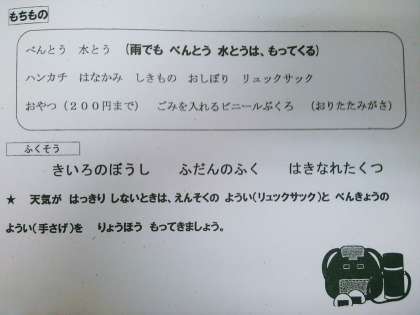 もちもの
べんとう　水とう　(雨でも　べんとう　水とうは、もってくる)
ハンカチ　はなかみ　しきもの　おしぼり　リュックサック
おやつ(２００円まで)　ごみを入れるビニールぶくろ　(おりたたみがさ)
ふくそう
きいろのぼうし　ふだんのふく　はきなれたくつ
★　天気が　はっきり　しないときは、えんそくの　ようい(リュックサック)と　べんきょうの
ようい(手さげ)を　りょうほう　もってきましょう。